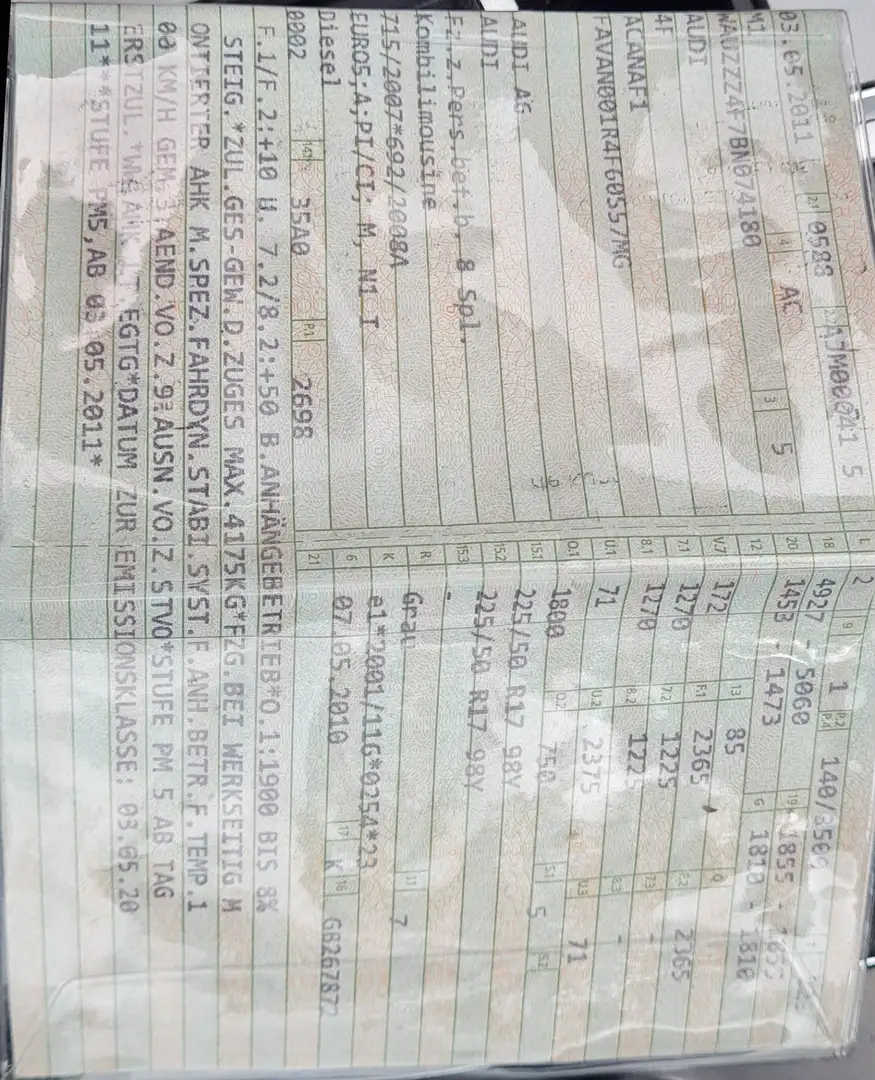 03.05.2011 2.1 0588 2.2 AJM00041 5
M1 4 AC 3 5
WAUZZZ4F7BN074180
AUDI
4F
ACANAF1
FAVAN001R4F60557MG
AUDI AG
AUDI
Fz.z.Pers.bef.b. 8 Spl.
Kombilimousine
715/2007*692/2008A
EURO5;A;PI/CI; M, N1 I
Diesel
0002 14.1 35A0 P.1 2698
L 2 9 1 P.2 P.4 140/3500
18 4927 - 5060
20 1453 - 1473 19 1855 -
12 13 85 G 1810 - 1810
V.7 172 F.1 2365 F.2 2365
7.1 1270 7.2 1225 7.3 -
8.1 1270 8.2 1225 8.3 -
U.1 71 U.2 2375 U.3 71
O.1 1800 O.2 750 S.1 5 S.2
15.1 225/50 R17 98Y
15.2 225/50 R17 98Y
15.3 -
R Grau 11 7
K e1*2001/116*0254*23
6 07.05.2010 17 K 16 GB267872
21
F.1/F.2:+10 U. 7.2/8.2:+50 B.ANHÄNGEBETRIEB*O.1:1900 BIS 8%
STEIG.*ZUL.GES-GEW.D.ZUGES MAX.4175KG*FZG.BEI WERKSEITIG M
ONTIERTER AHK M.SPEZ.FAHRDYN.STABI.SYST.F.ANH.BETR.F.TEMP.1
00 KM/H GEM.3.AEND.VO.Z.9.AUSN.VO.Z.STVO*STUFE PM 5 AB TAG
ERSTZUL.*WW.AHK LT.EGTG*DATUM ZUR EMISSIONSKLASSE: 03.05.20
11***STUFE PM5,AB 03.05.2011*